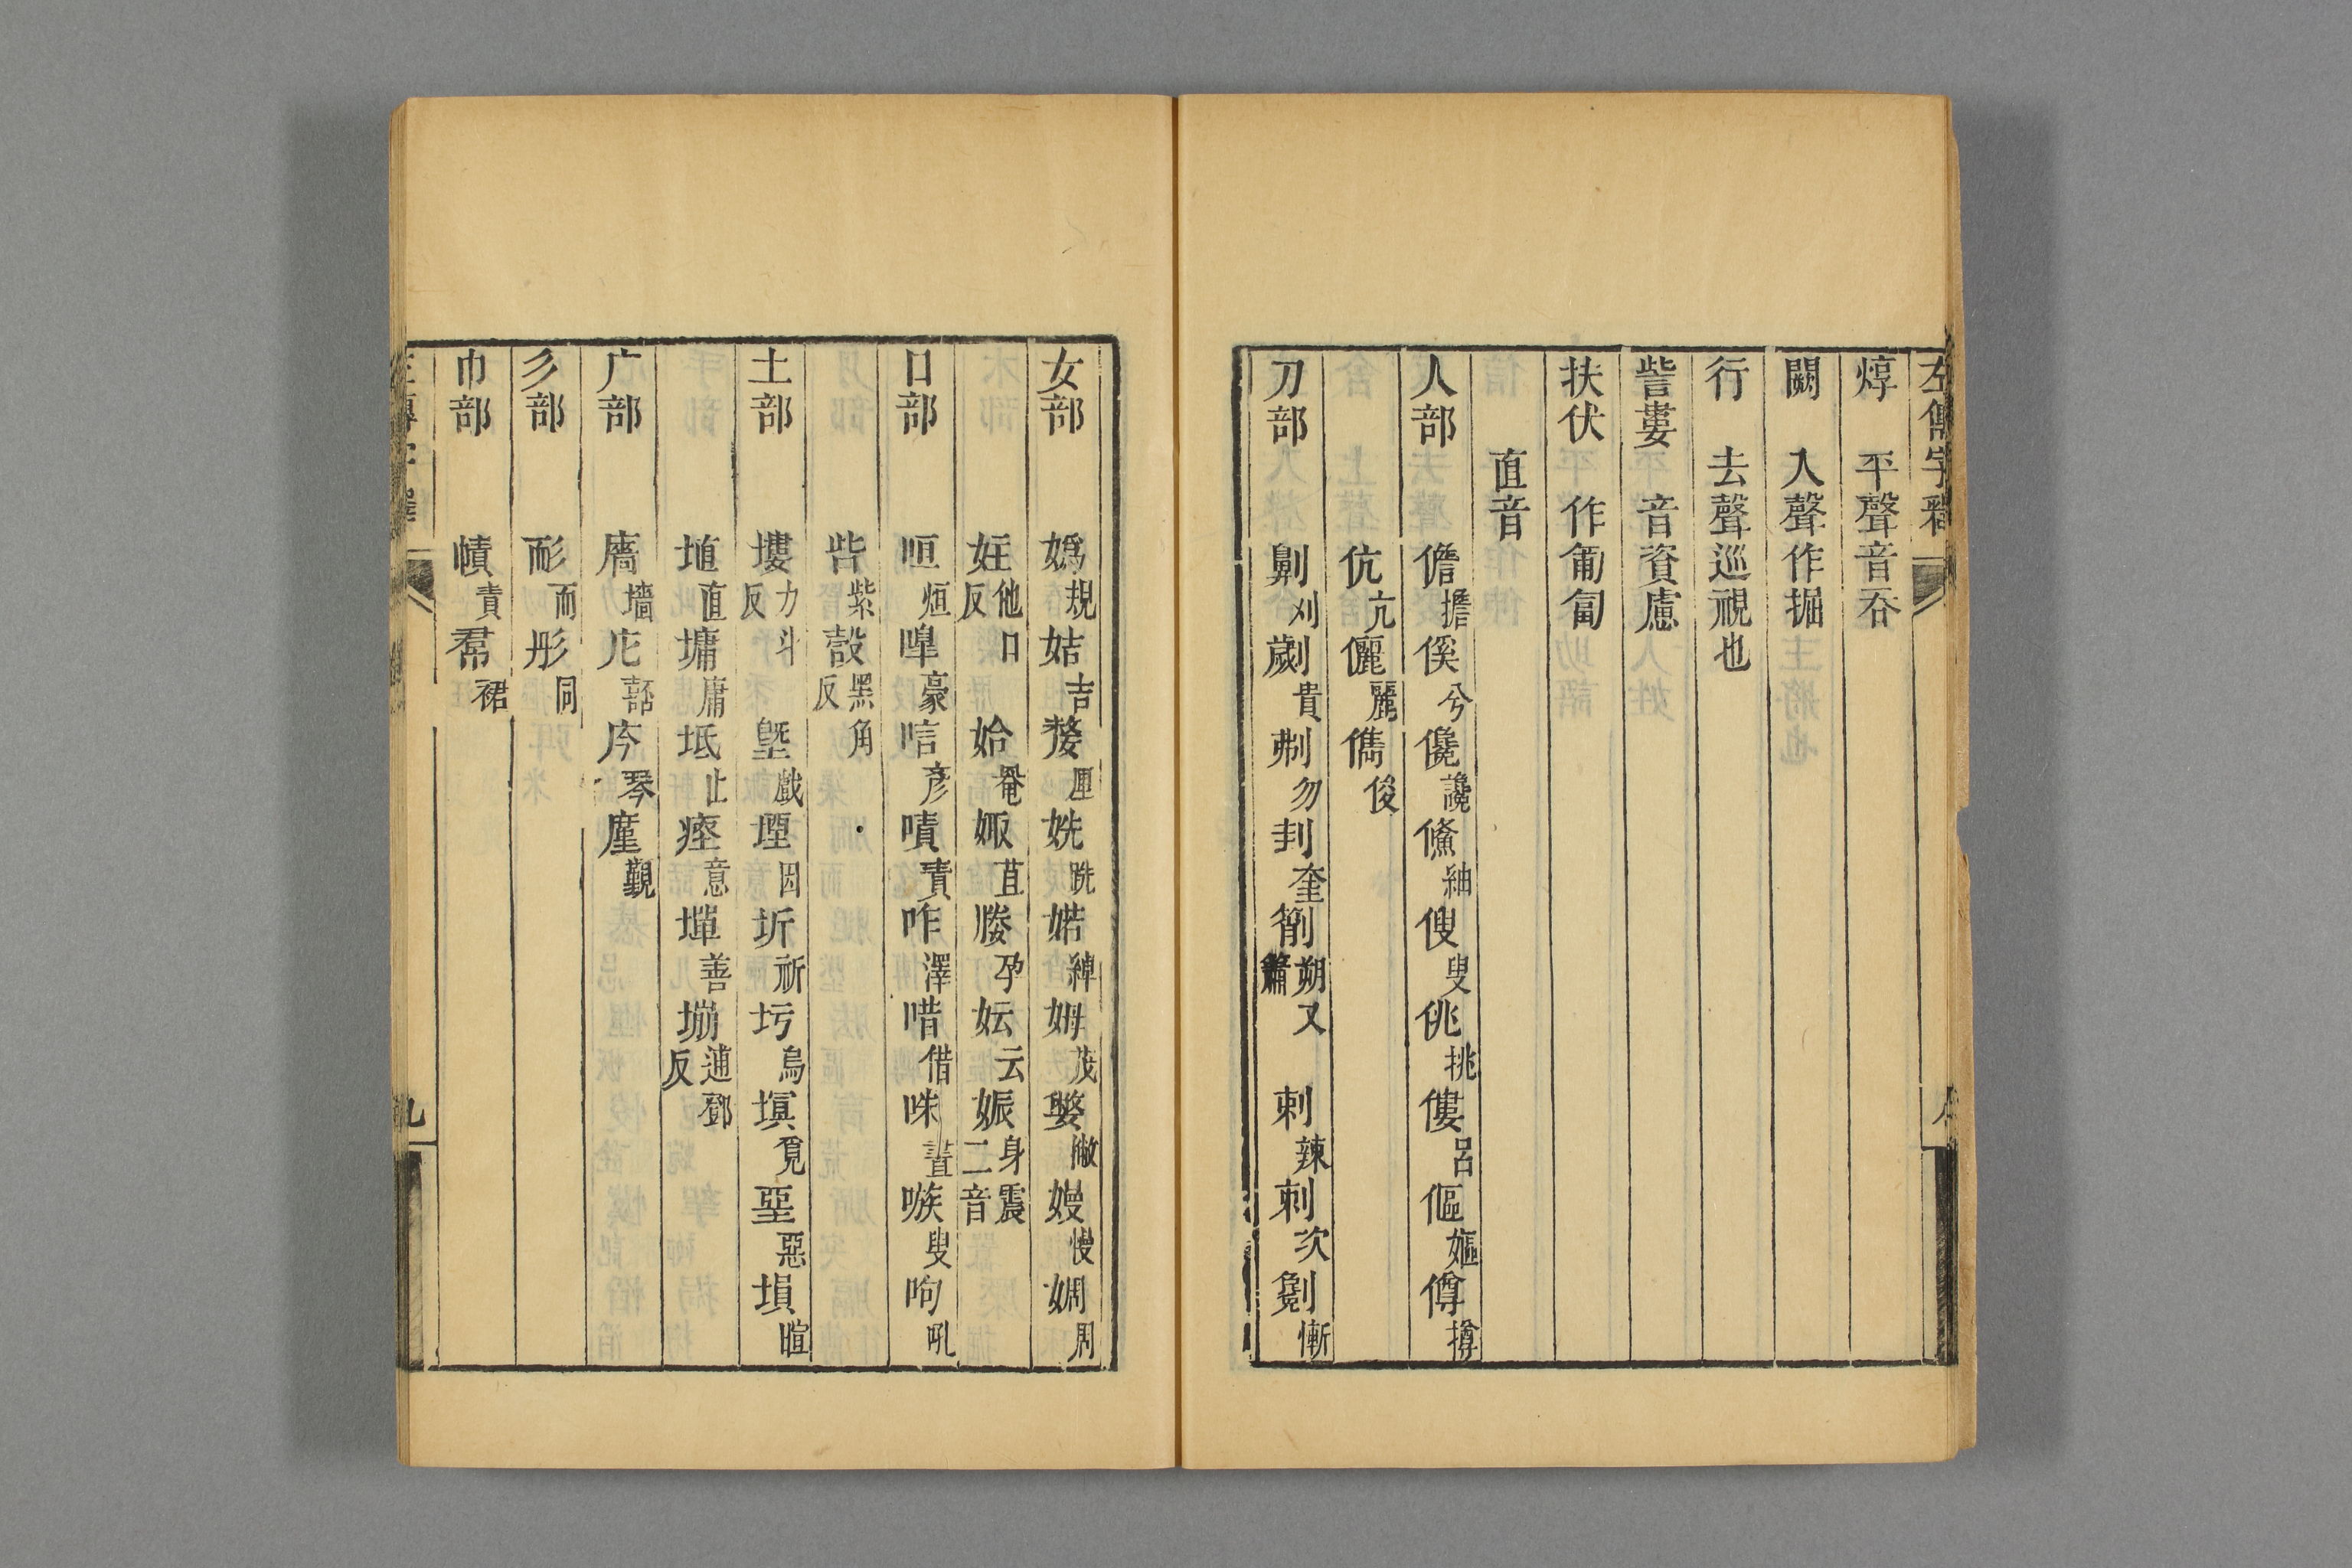 焞　平聲音吞
闕　入聲作掘
行　去聲巡視也
訾婁　音資慮
扶伏　作匍匐
直音
人部　儋擔傒兮儳讒鯈紬傁叟佻挑僂呂傴嫗僔撙
伉亢儷麗儁俊
刀部　劓刈劌貴刜勿刲奎箾朔又簫　剌辣刺次劖慚
女部　嬀規姞吉嫠厘姺跣婼綽姆茂嫳撇嫚慢婤周
妵他口反　姶罨娵苴媵孕妘云娠身震二音
口部　咺烜嘷豪唁彥嘖責咋澤唶借咮晝嗾叟呴吼
呰紫㱿黑角反
土部　塿力斗反　塈戲堙因圻祈圬烏塓覓堊惡塤喧
埴直墉庸坻止瘞意墠善堋逋鄧反
广部　廧墻庀嚭庈琴廑覲
彡部　耏而彤同
巾部　幘責帬裙
九